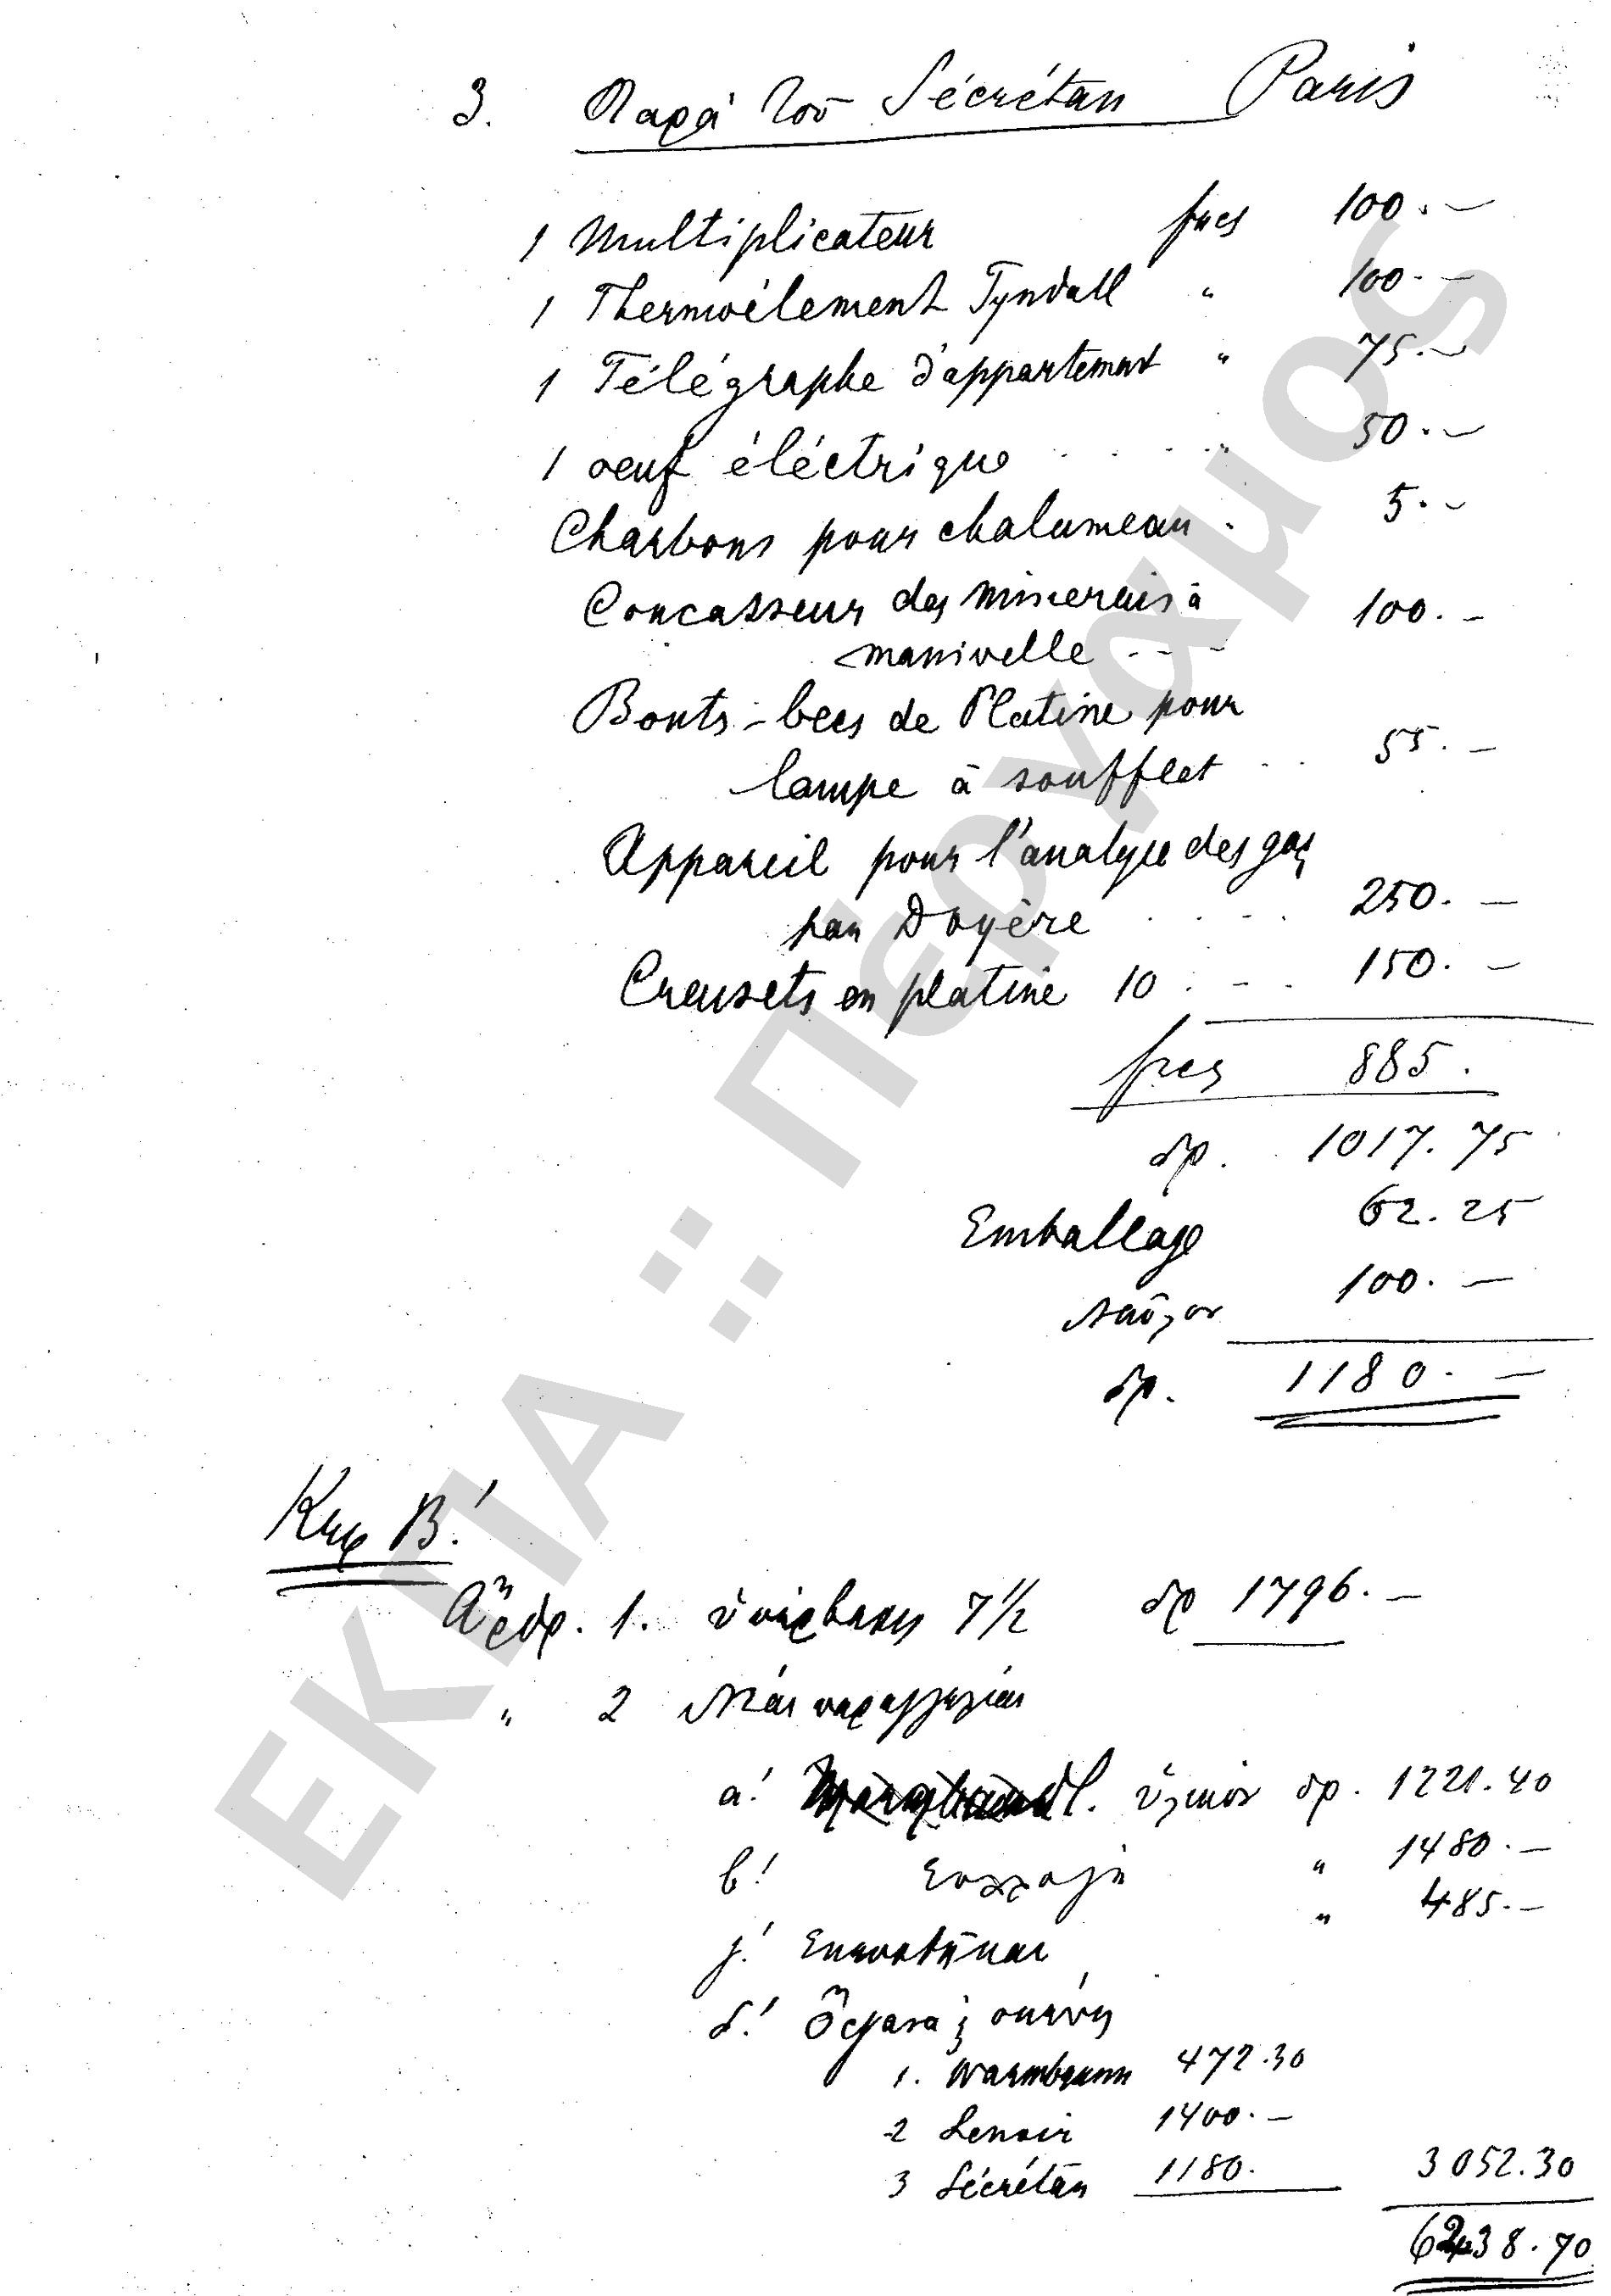 3. Παρὰ τοῦ Sécrétan Paris
1 Multiplicateur frcs 100.—
1 Thermoélement Tyndall " 100.—
1 Télégraphe d'appartement " 75.—
1 oeuf éléctrique . . . . " 50.—
Charbons pour chalumeau . 5.—
Concasseur des minerais à 100.—
manivelle - - -
Bouts-becs de Platine pour
lampe à soufflet . . 55.—
Appareil pour l'analyse des gaz
par Doyère . . . . 250.—
Creusets en platine 10 . - - . 150.—
frcs 885.
δρ. 1017.75
Emballage 62.25
Ναῦλον 100.—
δρ. 1180.—
Κεφ Β'.
Ἄρθρ. 1. ὑπέρβασις 7 1/2 δρ 1796.—
" 2 Νέαι παραγγελίαι
α'. ὑλικόν δρ. 1221.40
β'. Συλλογὴ " 1480.—
" 485.—
γ'. Σκευοθῆκαι
δ'. Ὄργανα & σκεύη
1. Warmbrunn 472.30
2 Lenoir 1400.—
3 Sécrétan 1180. 3052.30
6238.70
ΕΚΠΑ :: Πέργαμος